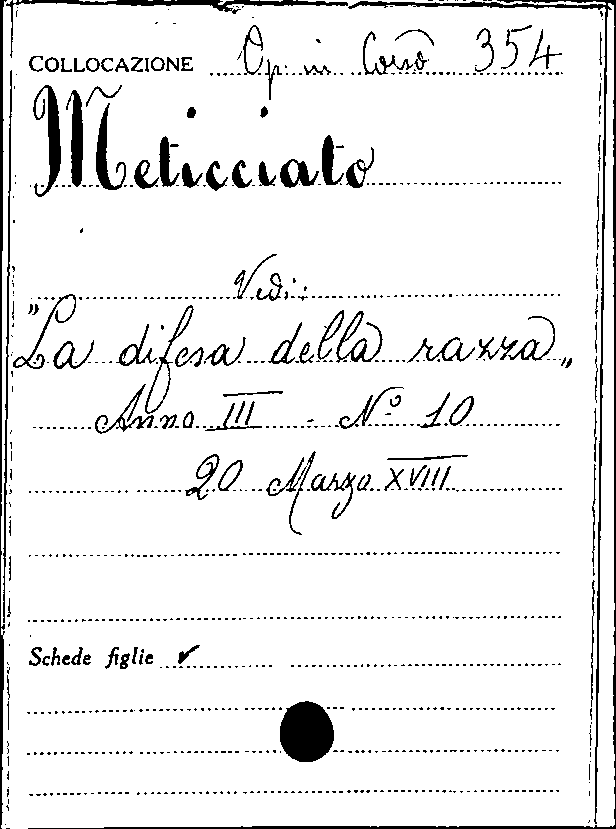 COLLOCAZIONE Op. in Corso 354
Meticciato
Vedi:
"La difesa della razza„
Anno III - Nº 10
20 Marzo XVIII
Schede figlie ✓